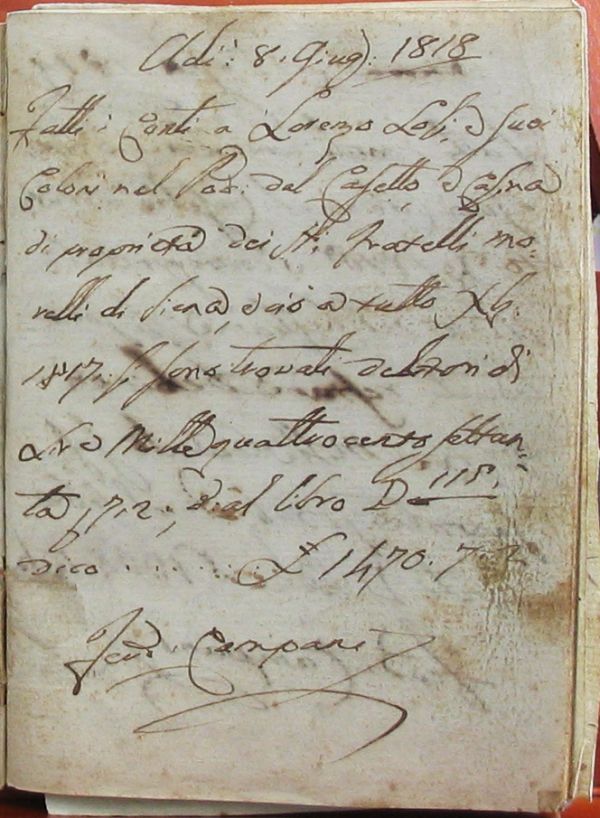 Adi: 8. Giug: 1818
Fatti i Conti a Lorenzo Losi, e suoi
Coloni nel Pod: del Casetto e Casina
di proprietà dei SS. Fratelli Mo-
relli di Siena, e ciò a tutto Xb.
1817. si sono trovati debitori di
Lire Mille quattrocento settan-
ta 7.2.; e al libro D 118.
dico . . . . . . £ 1470. 7. 2
Campani